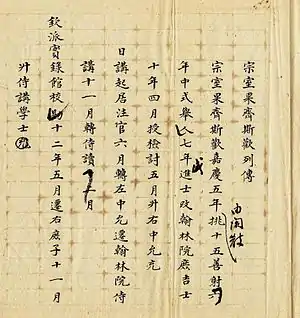 宗室果齊斯歡列傳
由閒散
宗室果齊斯歡嘉慶五年挑十五善射六
年中式舉人七年進士改翰林院庶吉士
十年四月授檢討五月升右中允充
日講起居注官六月轉左中允遷翰林院侍
講十一月轉侍讀十一月
欽派實錄館校勘十二年五月遷右庶子十一月
升侍講學士